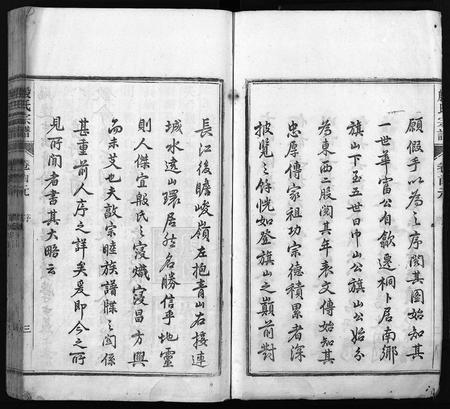 殷氏宗譜
卷首元
願假手以為之序閱其圖始知其
一世華富公自歙遷桐卜居南鄉
旗山下至五世曰中山公旗山公始分
為東西二股閱其年表文傳始知其
忠厚傳家祖功宗德積累者深
披覽之餘恍如登旗山之巔前對
長江後瞻峻嶺左抱青山右接連
城水遶山環居然名勝信乎地靈
則人傑宜殷氏之寖熾寖昌方興
而未艾也夫敬宗睦族譜牒之關係
甚重前人序之詳矣爰即今之所
見所聞者書其大略云
殷氏宗譜
卷首元
序
三